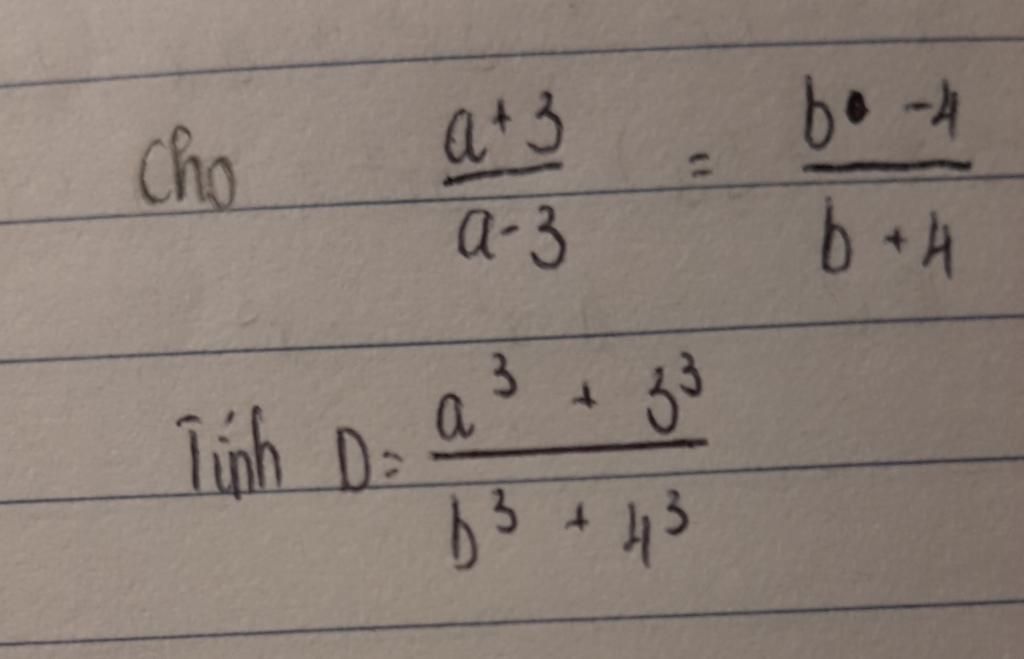 Cho (a+3)/(a-3) = (b -4)/(b + 4)
Tính D= (a³ + 3³)/(b³ + 4³)